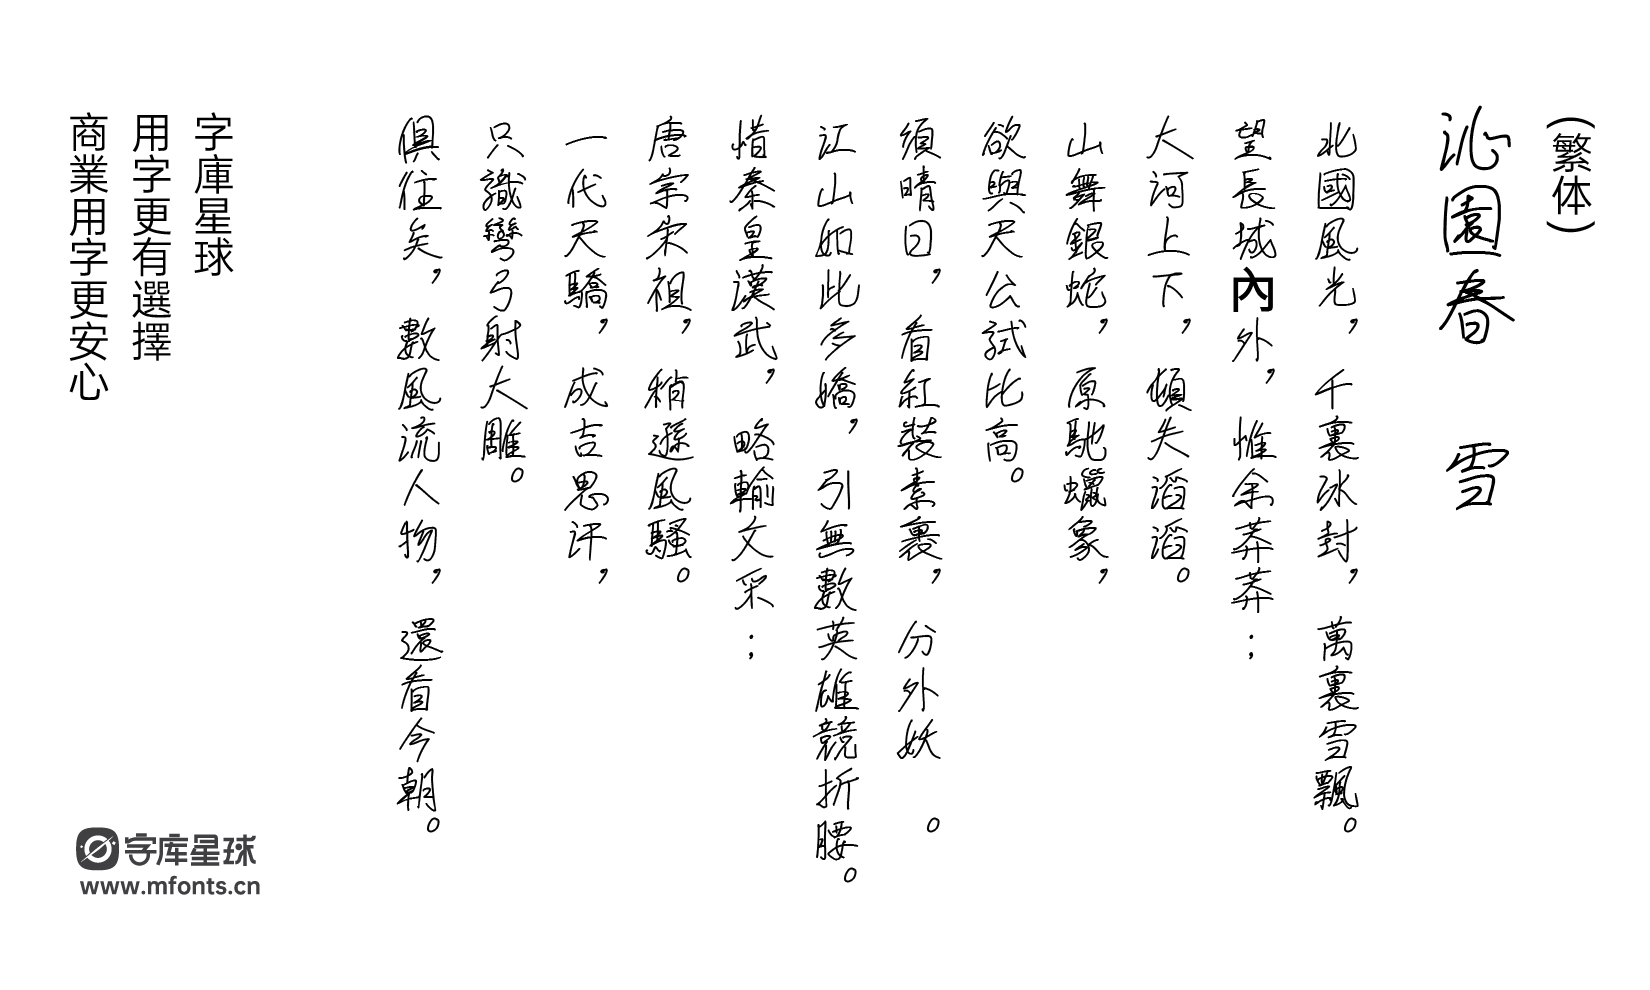 （繁体）
沁園春　雪
北國風光，千裏冰封，萬裏雪飄。
望長城內外，惟余莽莽；
大河上下，頓失滔滔。
山舞銀蛇，原馳蠟象，
欲與天公試比高。
須晴日，看紅裝素裹，分外妖　。
江山如此多嬌，引無數英雄競折腰。
惜秦皇漢武，略輸文采；
唐宗宋祖，稍遜風騷。
一代天驕，成吉思汗，
只識彎弓射大雕。
俱往矣，數風流人物，還看今朝。
字庫星球
用字更有選擇
商業用字更安心
字库星球
www.mfonts.cn